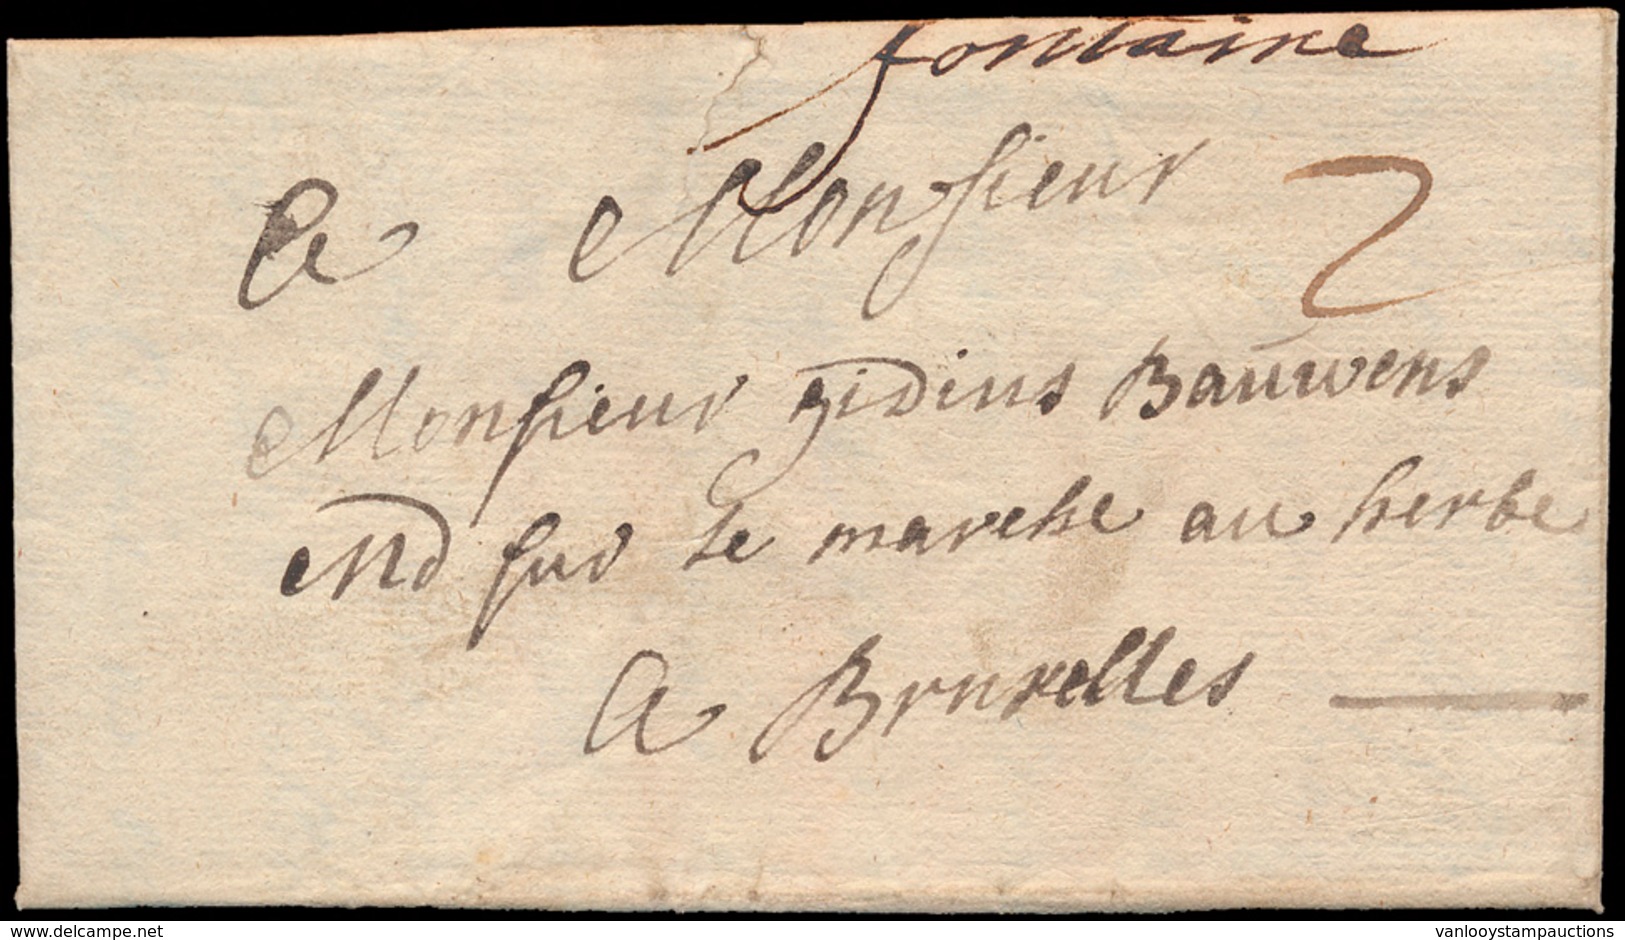 fontaine
A Monsieur
2
Monsieur gidius Bauwens
sur le marche au herbe
A Bruxelles
delcampe.net
vanlooystampauctions